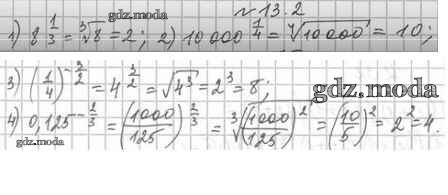 № 13.2
gdz.moda
1) 8^{1/3} = ∛8 = 2; 2) 10000^{1/4} = ∜10000 = 10;
3) (1/4)^{-3/2} = 4^{3/2} = √4³ = 2³ = 8;
gdz.moda
4) 0,125^{-2/3} = (1000/125)^{2/3} = ∛(1000/125)² = (10/5)² = 2² = 4.
gdz.moda